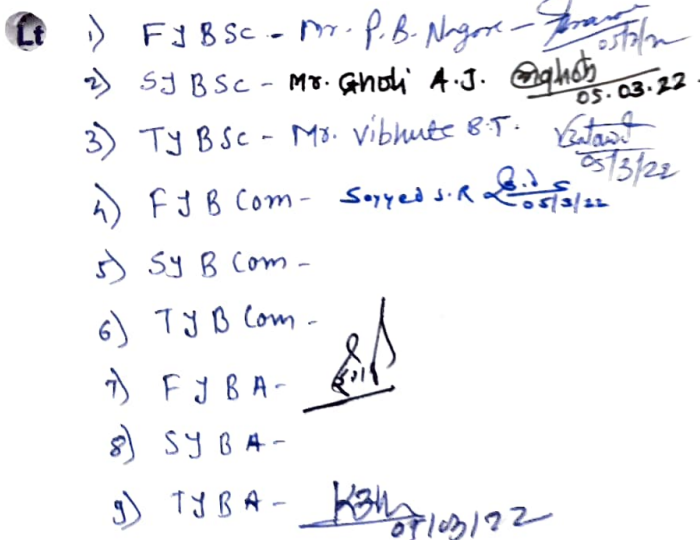 Lt
1) F Y B Sc - Mr. P. B. Nagore - 05/3/22
2) S Y B Sc - Mr. Gholi A.J. 05.03.22
3) T Y B Sc - Mr. Vibhute S.T. 05/3/22
4) F Y B Com - Sayyed S.R 05/3/22
5) S Y B Com -
6) T Y B Com -
7) F Y B A -
8) S Y B A -
9) T Y B A - 05/03/22